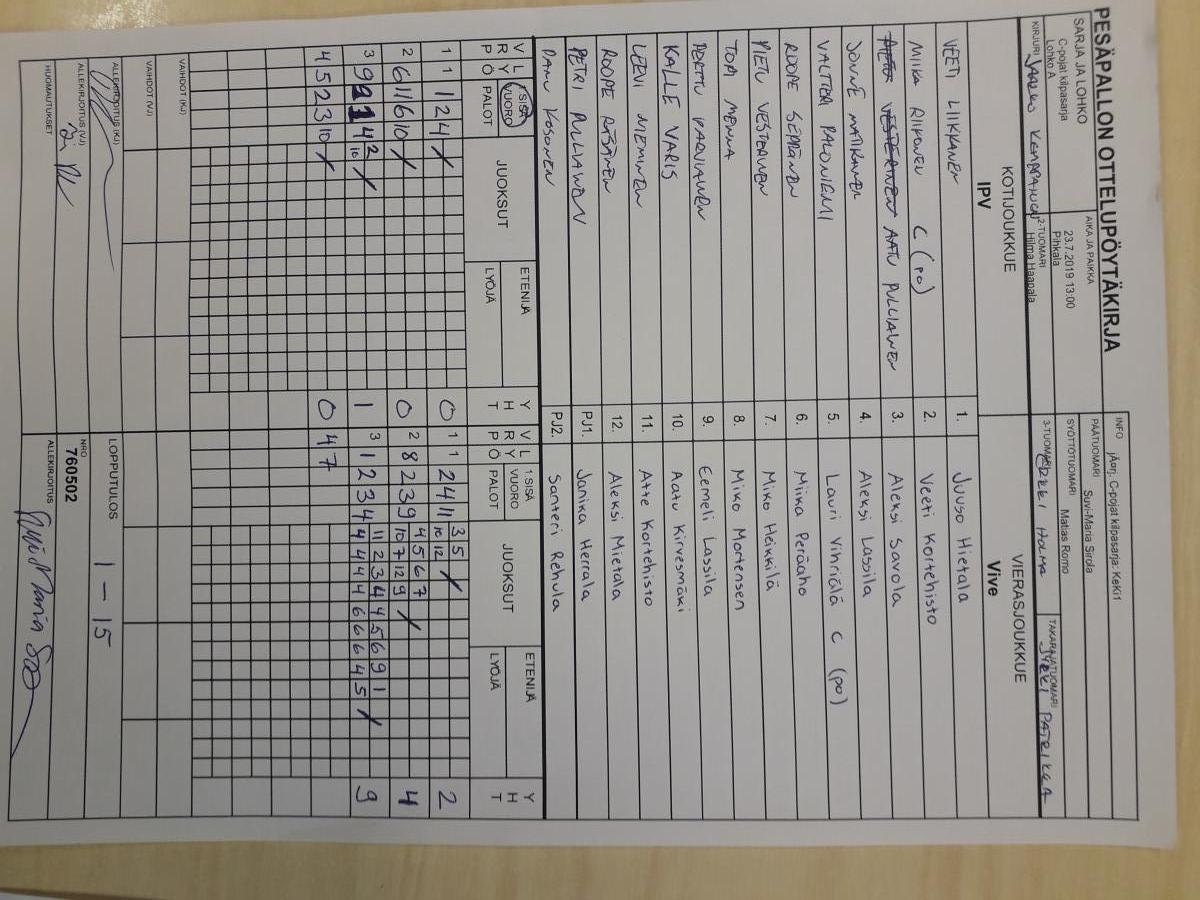 PESÄPALLON OTTELUPÖYTÄKIRJA
INFO
jAarj. C-pojat kilpasarja: KeKi1
SARJA JA LOHKO
C-pojat kilpasarja
Lohko A
AIKA JA PAIKKA
23.7.2019 13:00
Pihkala
PÄÄTUOMARI
Suvi-Maria Sirola
SYÖTTÖTUOMARI
Matias Romo
KIRJURI
2-TUOMARI
Hilma Haapala
3-TUOMARI
TAKARAJATUOMARI
KOTIJOUKKUE
IPV
VIERASJOUKKUE
Vive
VEETI LIIKKANEN 1. Juuso Hietala
MIIKA RIIKONEN C (po) 2. Veeti Kortehisto
AATU PULLIAINEN 3. Aleksi Savola
MATIKAINEN 4. Aleksi Lassila
VALTTERI PALONIEMI 5. Lauri Vihriälä C (po)
ROOPE SEPPÄNEN 6. Miika Peräaho
PIETU VESTERINEN 7. Miko Heikkilä
TOPI MENNA 8. Miko Mortensen
PERTTU PARVIAINEN 9. Eemeli Lassila
KALLE VARIS 10. Aatu Kirvesmäki
LEEVI NIEMINEN 11. Atte Kortehisto
ROOPE RÄSÄNEN 12. Aleksi Mietala
PETRI PULLIAINEN PJ1. Janika Herrala
PANU KOSONEN PJ2. Santeri Rehula
V L R Y P Ö 1.SISÄ VUORO PALOT JUOKSUT ETENIJÄ LYÖJÄ Y H T V L R Y P Ö 1.SISÄ VUORO PALOT JUOKSUT ETENIJÄ LYÖJÄ Y H T
1 1 1 2 4 / 0 1 1 2 4 11 3 5 / 2
10 12
2 6 11 6 10 / 0 2 8 2 3 9 4 5 6 7 / 4
10 7 12 9
3 9 9 1 4 2 / 1 3 1 2 3 4 11 2 3 4 4 5 6 9 1 / 9
10 4 4 4 4 6 6 6 4 5
4 5 2 3 10 / 0 4 7
VAIHDOT (KJ)
VAIHDOT (VJ)
LOPPUTULOS
1 - 15
ALLEKIRJOITUS (KJ)
ALLEKIRJOITUS (VJ)
NRO
760502
HUOMAUTUKSET
ALLEKIRJOITUS